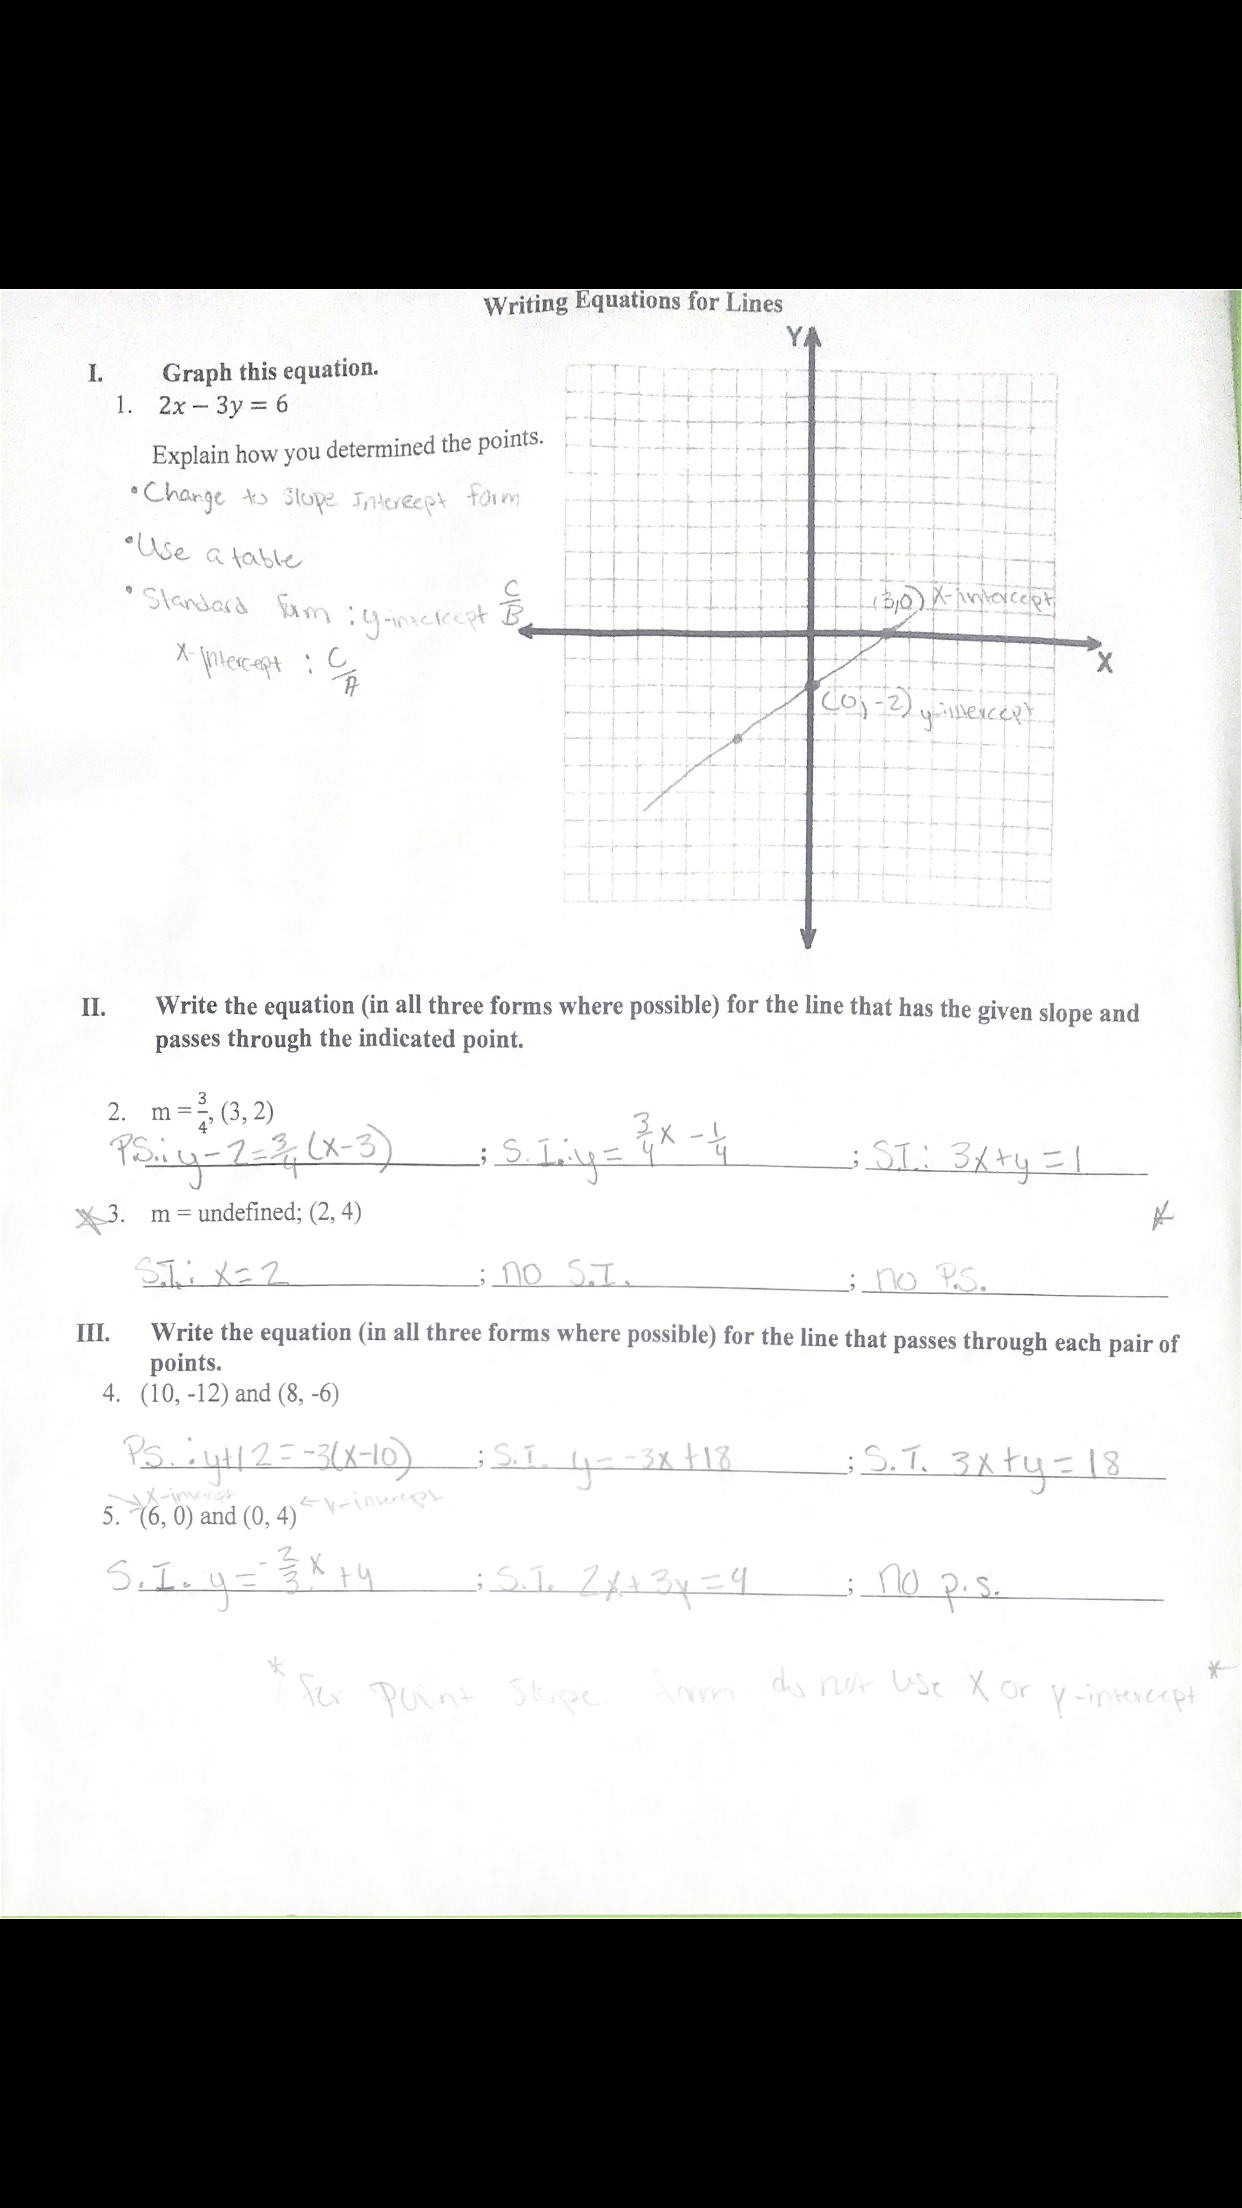 Writing Equations for Lines
Y
I. Graph this equation.
1. 2x – 3y = 6
Explain how you determined the points.
• Change to slope Intercept form
• Use a table
• Standard form : y-intercept C/B
x-intercept : C/A
(3,0) x-intercept
X
(0, -2) y-intercept
II. Write the equation (in all three forms where possible) for the line that has the given slope and
passes through the indicated point.
2. m = 3/4, (3, 2)
P.S.: y-2=3/4(x-3) ; S.I.: y= 3/4x - 1/4 ; S.T.: 3x+y=1
3. m = undefined; (2, 4)
S.T.: x=2 ; no S.I. ; no P.S.
III. Write the equation (in all three forms where possible) for the line that passes through each pair of
points.
4. (10, -12) and (8, -6)
P.S.: y+12=-3(x-10) ; S.I. y=-3x+18 ; S.T. 3x+y=18
x-intercept
5. (6, 0) and (0, 4) ← y-intercept
S.I. y=-2/3x+4 ; S.T. 2x+3y=4 ; no p.s.
* for point slope form do not use x or y-intercept *